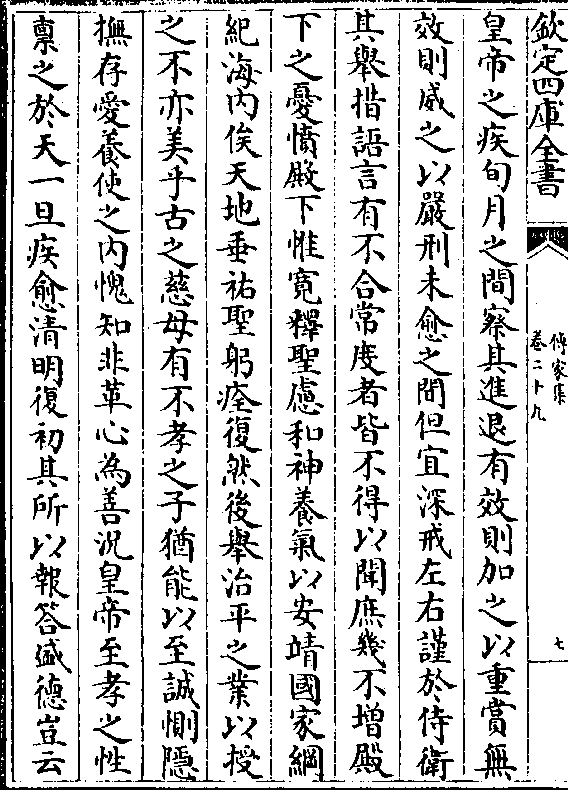 欽定四庫全書
傳家集
卷二十九
七
皇帝之疾旬月之間察其進退有效則加之以重賞無
效則威之以嚴刑未愈之間但宜深戒左右謹於侍衛
其舉措語言有不合常度者皆不得以聞庶幾不增殿
下之憂憤殿下惟寛釋聖慮和神養氣以安靖國家綱
紀海内俟天地垂祐聖躬痊復然後舉治平之業以授
之不亦美乎古之慈母有不孝之子猶能以至誠惻隱
撫存愛養使之内愧知非革心為善況皇帝至孝之性
禀之於天一旦疾愈清明復初其所以報答盛德豈云